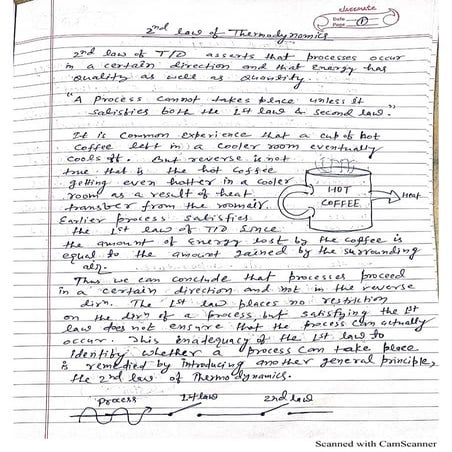 classmate
Date
Page 1
2nd law of Thermodynamics
2nd law of T/D asserts that processes occur
in a certain direction and that energy has
quality as well as quantity.
"A process cannot takes place unless it
satisfies both the 1st law & second law."
It is common experience that a cup of hot
coffee left in a cooler room eventually
cools it. But reverse is not
true that is the hot coffee
getting even hotter in a cooler
room as a result of heat
transfer from the room air.
HOT
COFFEE
Heat
Earlier process satisfies
the 1st law of T/D since
the amount of energy lost by the coffee is
equal to the amount gained by the surrounding
air.
Thus we can conclude that processes proceed
in a certain direction and not in the reverse
dirn. The 1st law places no restriction
on the dirn of a process but satisfying the 1st
law does not ensure that the process can actually
occur. This inadequacy of the 1st law to
identify whether a process can take place
is remedied by introducing another general principle,
the 2nd law of Thermodynamics.
Process 1st law 2nd law
Scanned with CamScanner